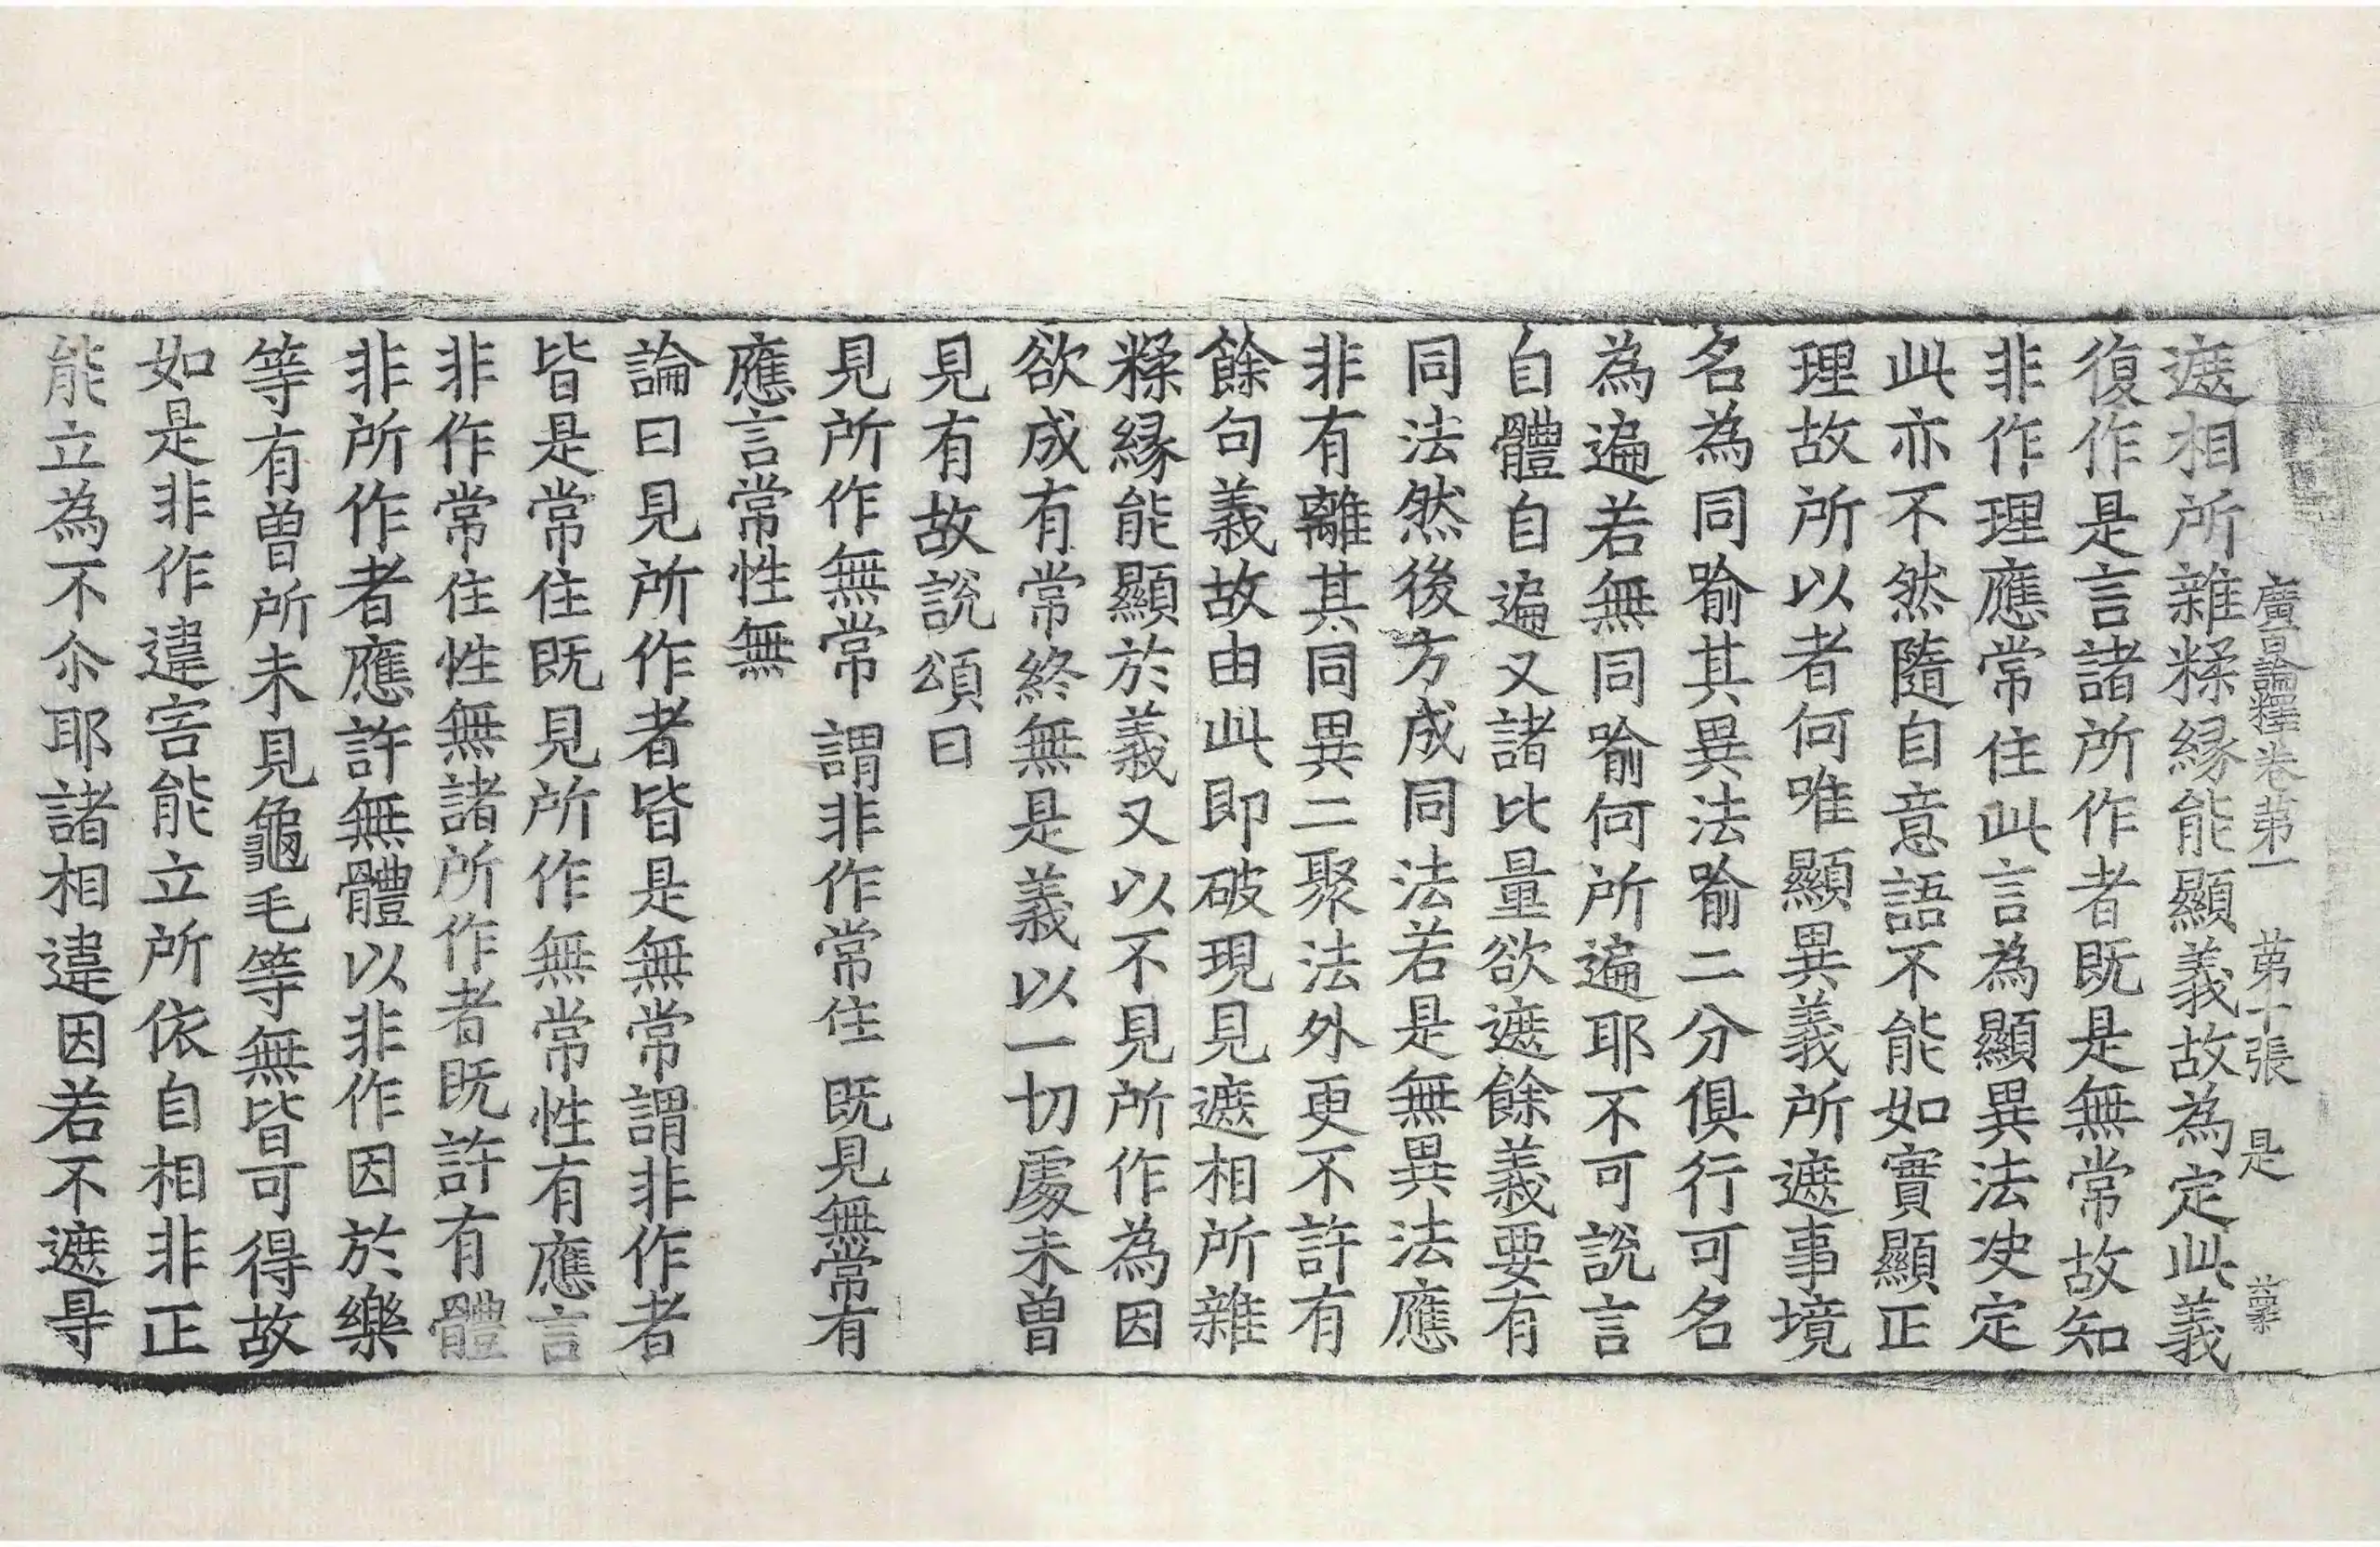 廣百論釋卷第一 第十張 是
遮相所雜糅緣能顯義故為定此義
復作是言諸所作者既是無常故知
非作理應常住此言為顯異法决定
此亦不然隨自意語不能如實顯正
理故所以者何唯顯異義所遮事境
名為同喻其異法喻二分俱行可名
為遍若無同喻何所遍耶不可說言
自體自遍又諸比量欲遮餘義要有
同法然後方成同法若是無異法應
非有離其同異二聚法外更不許有
餘句義故由此即破現見遮相所雜
糅緣能顯於義又以不見所作為因
欲成有常終無是義以一切處未曾
見有故說頌曰
見所作無常 謂非作常住 既見無常有
應言常性無
論曰見所作者皆是無常謂非作者
皆是常住既見所作無常性有應言
非作常住性無諸所作者既許有體
非所作者應許無體以非作因於樂
等有曾所未見龜毛等無皆可得故
如是非作違害能立所依自相非正
能立為不尒耶諸相違因若不遮㝵